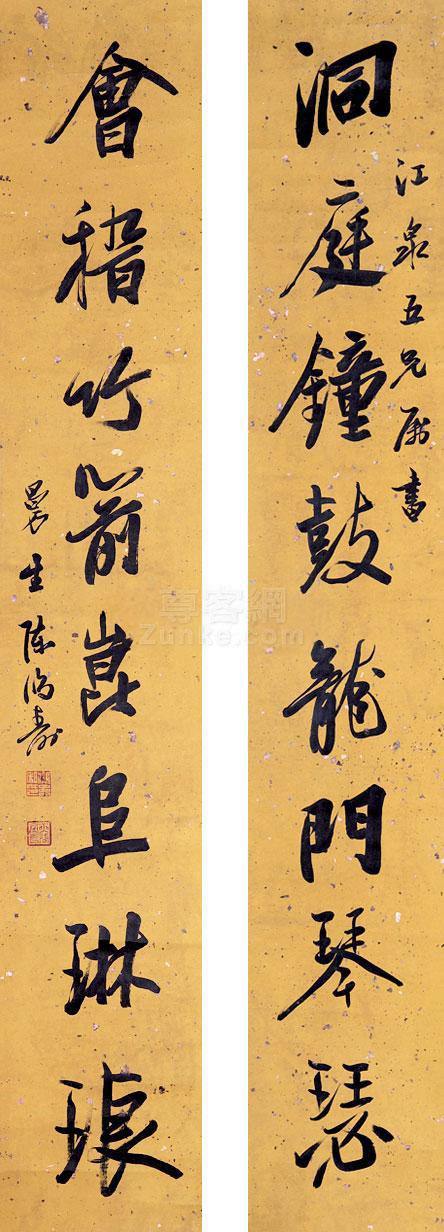 江泉五兄屬書
洞庭鐘鼓龍門琴瑟
會稽竹箭崑阜琳琅
曼生陳鴻壽
尊客網
Zunke.com